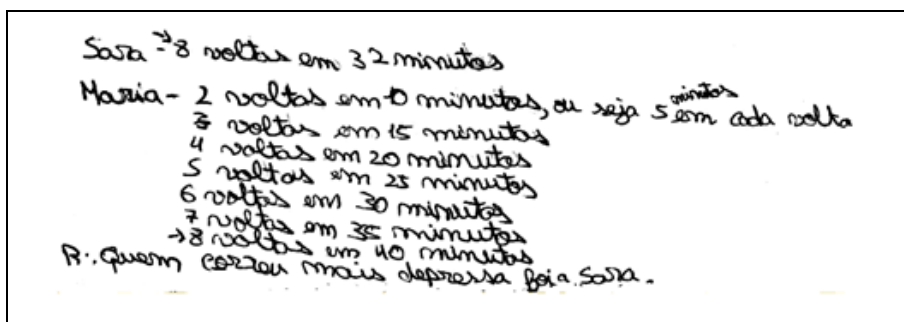 Sara - → 8 voltas em 32 minutos
Maria - 2 voltas em 10 minutos, ou seja 5 minutos em cada volta
3 voltas em 15 minutos
4 voltas em 20 minutos
5 voltas em 25 minutos
6 voltas em 30 minutos
7 voltas em 35 minutos
→ 8 voltas em 40 minutos
R: Quem correu mais depressa foi a Sara.